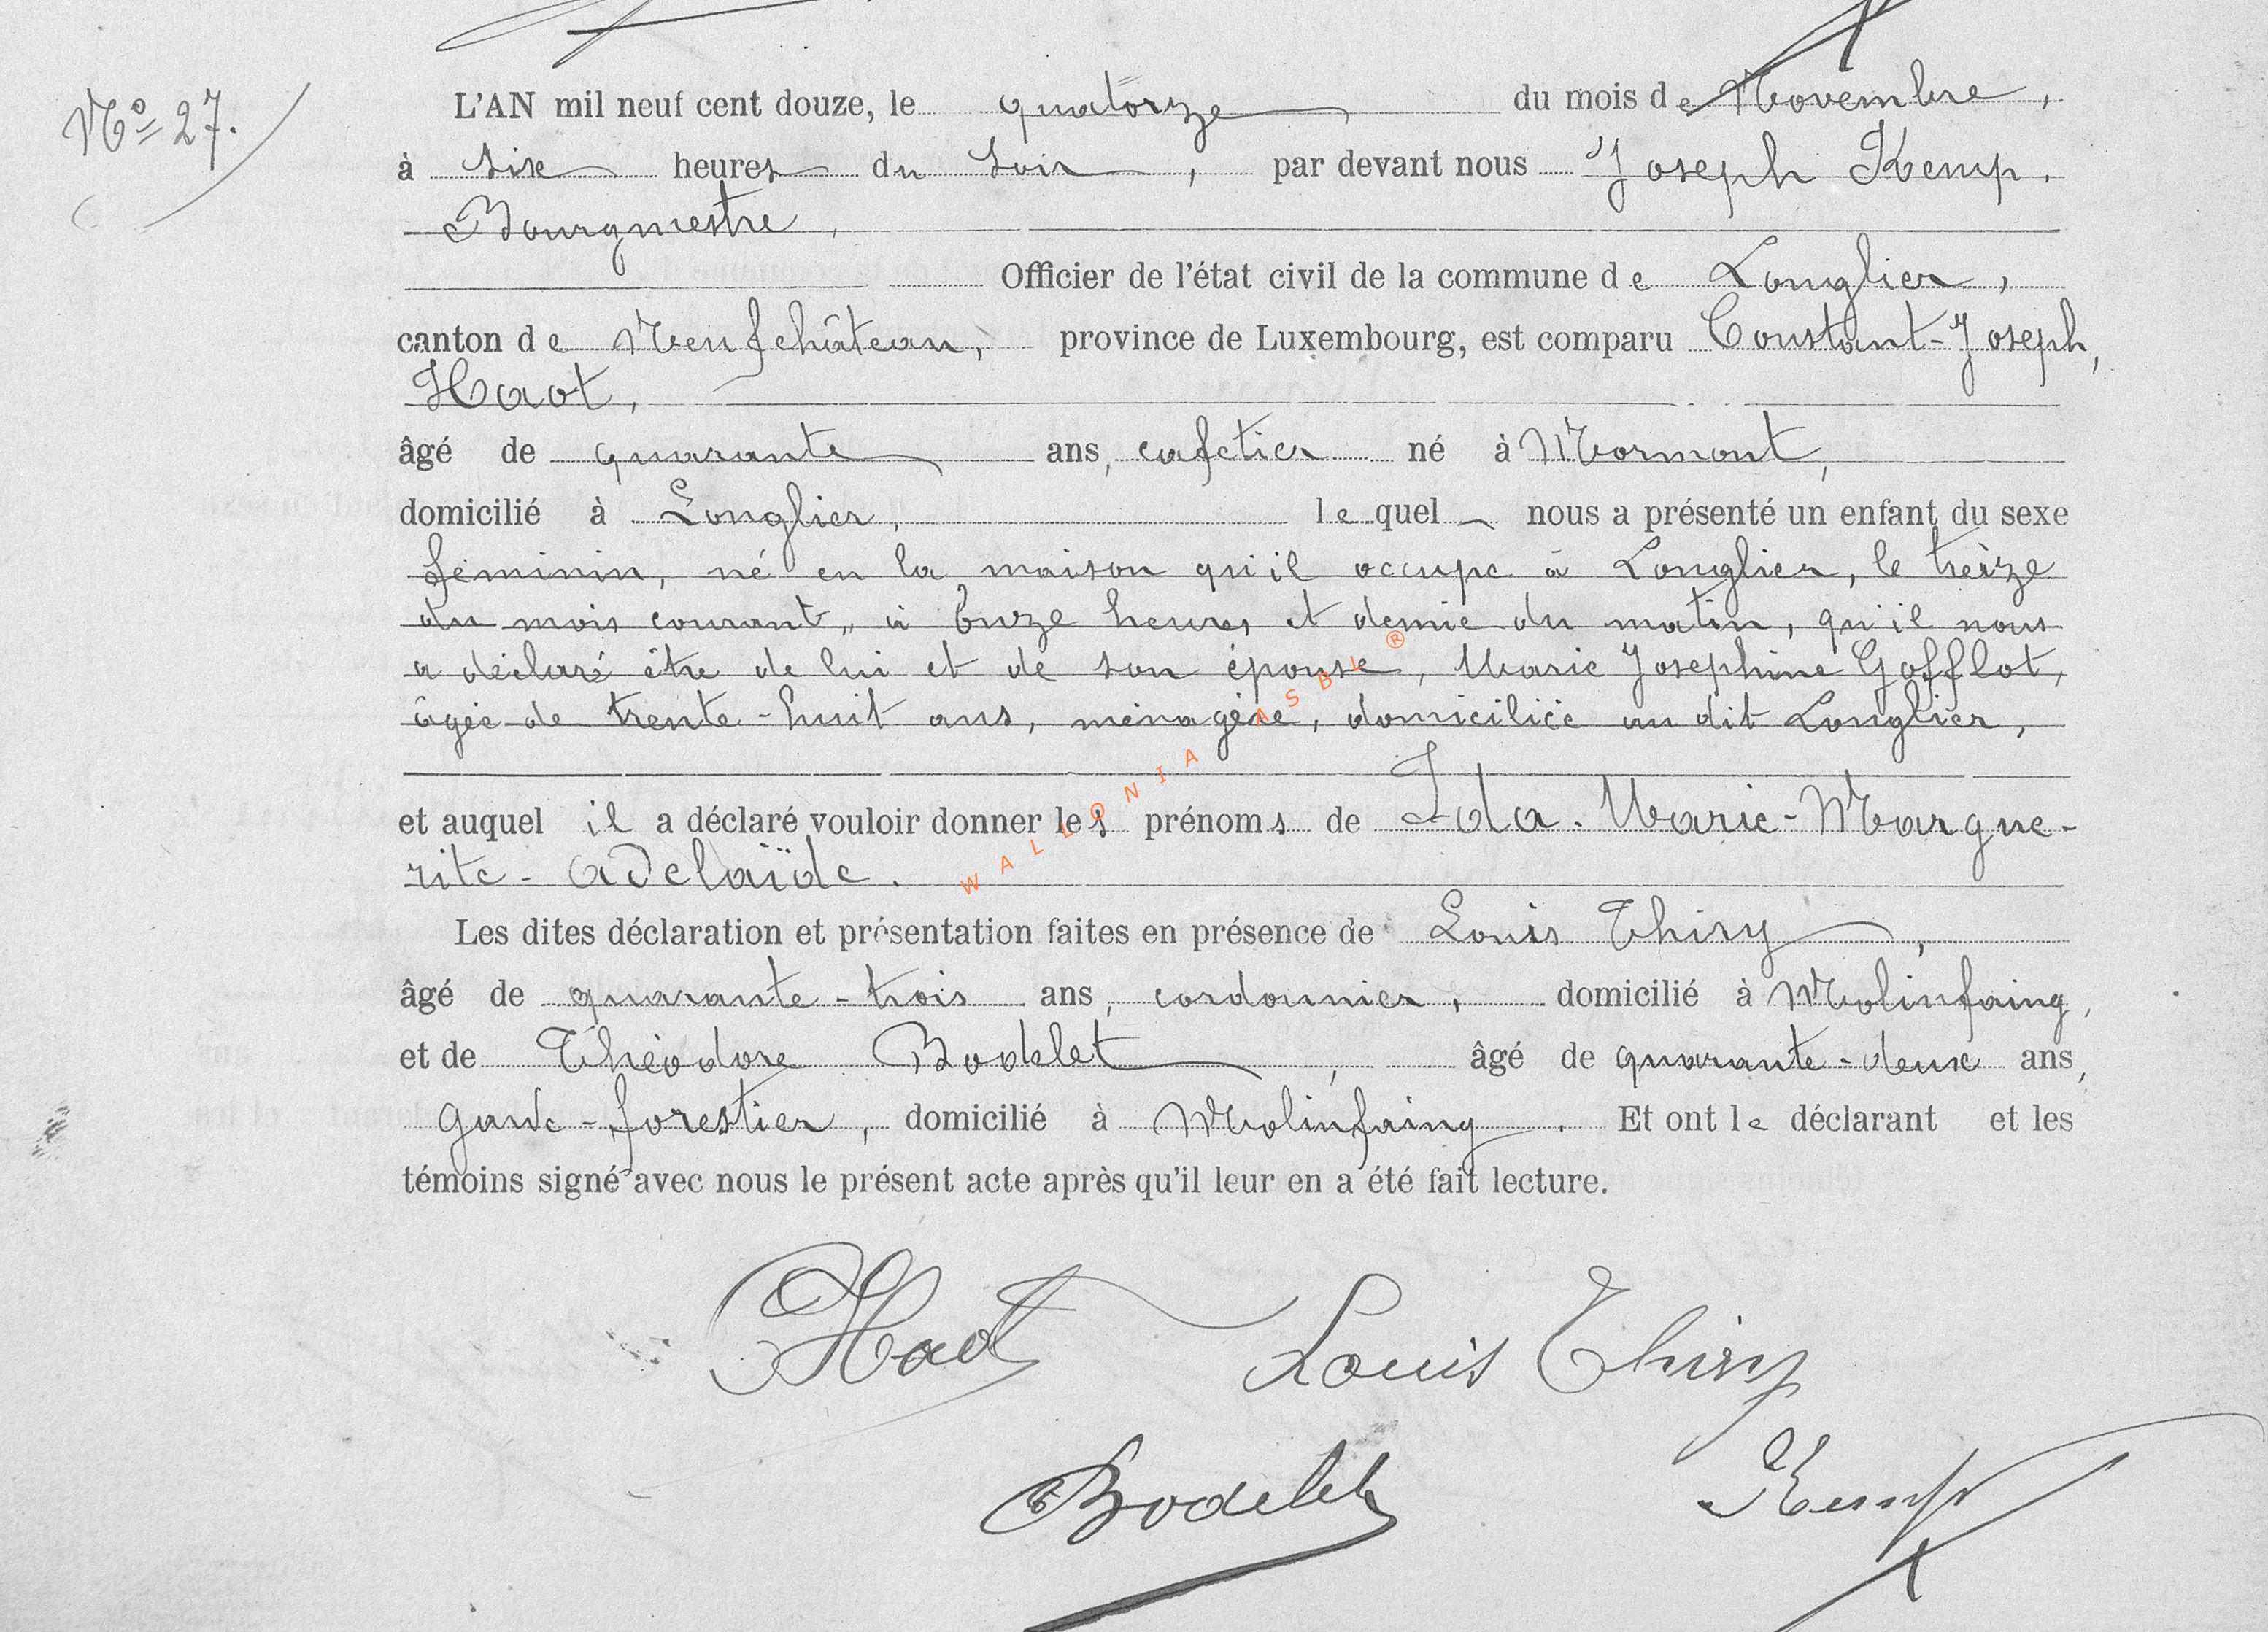 N° 27.
L'AN mil neuf cent douze, le quatorze du mois de Novembre,
à six heures du soir, par devant nous Joseph Kemp.
Bourgmestre,
Officier de l'état civil de la commune de Longlier,
canton de Neufchâteau, province de Luxembourg, est comparu Constant-Joseph,
Haot,
âgé de quarante ans, cafetier né à Mormont,
domicilié à Longlier, lequel nous a présenté un enfant du sexe
féminin, né en la maison qu'il occupe à Longlier, le treize
du mois courant, à onze heures et demie du matin, qu'il nous
a déclaré être de lui et de son épouse, Marie Josephine Gofflot,
âgée de trente-huit ans, ménagère, domiciliée au dit Longlier,
et auquel il a déclaré vouloir donner les prénoms de Ida-Marie-Margue-
rite-Adelaïde.
Les dites déclaration et présentation faites en présence de Louis Thiry,
âgé de quarante-trois ans, cordonnier, domicilié à Molinfaing,
et de Théodore Bodelet, âgé de quarante-deux ans,
garde-forestier, domicilié à Molinfaing. Et ont le déclarant et les
témoins signé avec nous le présent acte après qu'il leur en a été fait lecture.
Haot Louis Thiry
Bodelet Kemp
WALLONIA ASBL ®